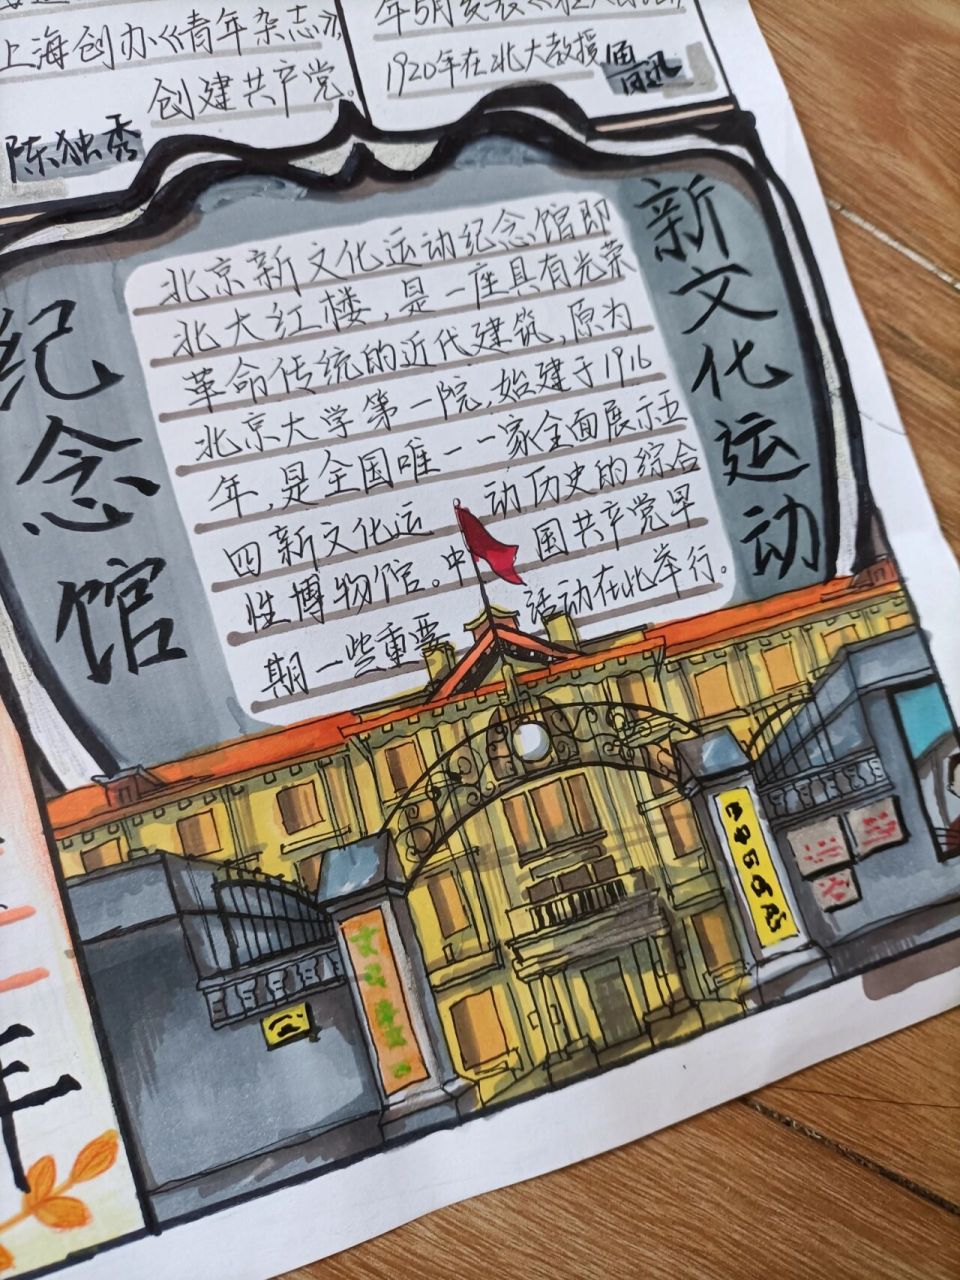 上海创办《青年杂志》,
创建共产党。
陈独秀
1920年在北大教授
新文化运动
纪念馆
北京新文化运动纪念馆即
北大红楼,是一座具有光荣
革命传统的近代建筑,原为
北京大学第一院,始建于1916
年,是全国唯一一家全面展示五
四新文化运动历史的综合
性博物馆。中国共产党早
期一些重要活动在此举行。
年